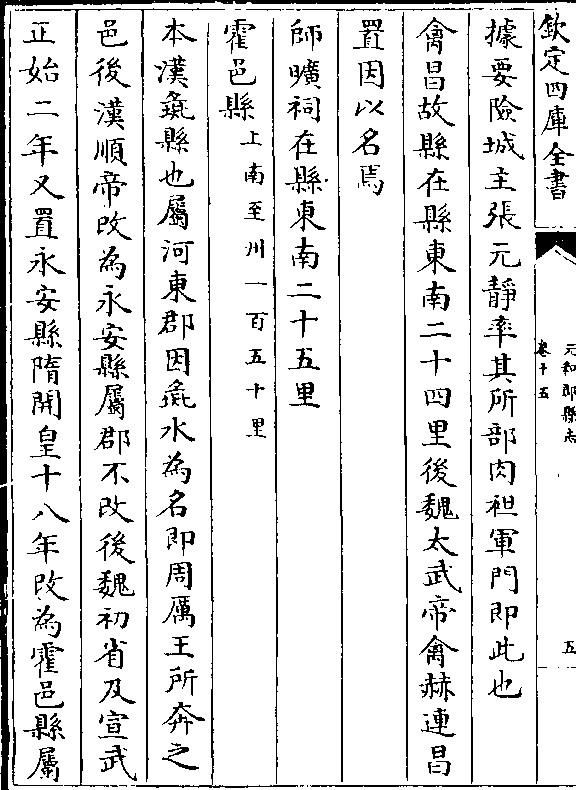 欽定四庫全書
元和郡縣志
卷十五
五
據要險城主張元靜率其所部肉袒軍門即此也
禽昌故縣在縣東南二十四里後魏太武帝禽赫連昌
置因以名焉
師曠祠在縣東南二十五里
霍邑縣上南至州一百五十里
本漢彘縣也屬河東郡因彘水為名即周厲王所奔之
邑後漢順帝改為永安縣屬郡不改後魏初省及宣武
正始二年又置永安縣隋開皇十八年改為霍邑縣屬